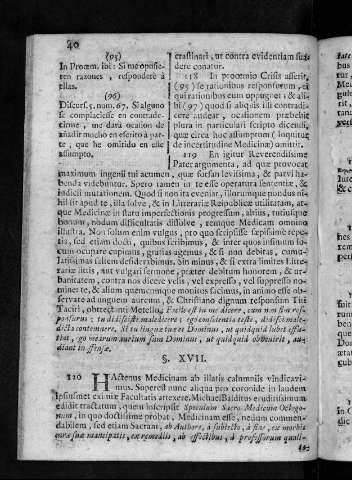 40
(95)
In Proœm. ibi: Si me opusie-
ren razones, responderè à
ellas.
(96)
Discurs. 5. num. 67. Si alguno
se complaciesse en contrade-
zirme, me darà ocasion de
añadir modio en escrito à par-
te, que he omitido en este
assumpto.
crassinari, ut contra evidentiam sua-
dere conatur.
118 In proœmio Crisis asserit,
(95) se rationibus responsurum, ei
qui rationibus eum oppugnet: & ali-
bi (97) quod si aliquis illi contradi-
cere audeat, ocasionem præbebit
plura in particulari scripto dicendi,
quæ circa hoc assumptum (loquitur
de incertitudine Medicinæ) omittit.
119 En igitur Reverendissime
Pater argumenta, ad quæ provocat
maximum ingenii tui acumen quæ satsan levissima, & parvi ha-
benda videbuntur. Spero tamen in te esse operatura lenitèntiæ, &
indicii mutationem. Quod si non ita eveniat, illorumque pondus ni-
hil sit apud te, illa solve, & in Litterariæ Reipublicæ utilitatem, at-
que Medicinæ in statu imperfectionis progressum, altius, tutiusque
bonum, nodum difficultatis dissolve, remque Medicam omnino
illustra. Non solum enim vulgus, pro quo scripsisse sæpissimè repe-
tis, sed etiam docti, quibus scribimus, & inter quos insimum lo-
cum ocupare cupimus, gratias agemus, & si non debitas, cumu-
latissimas saltem desideratibimus. Sin minus, & si extra limites Litte-
rariæ litis, aut vulgari sermone, præter debitum honorem, & ur-
banitatem, contra nos dicere velis, vel expresso, vel suppresso no-
mine te, & alium quemcumque monitos facimus, in animo esse ob-
servare ad unguem aureum, & Christiano dignum responsum Tui
Taciti, obtrectanti Metello. Facile est in me dicere, cum non sim res-
ponsurus: tu didicisti maledicere; ego conscientia teste, didici male-
dicta contemnere. Si tu linguæ tuæ es Dominus, ut quidquid lubet effu-
tias, ego mearum aurium sum Dominus, ut quidquid obvenerit, au-
diant in offensæ.
§. XVII.
120 HActenus Medicinam ab illatis calumniis vindicavi-
mus. Superest nunc aliqua pro coronide in laudem
ipsiusmet eximiæ Facultatis attexere. Michael Balditus eruditissimum
edidit tractatum, quem inscripsit Speculum Sacro-Medicum Octogo-
num, in quo doctissimè probat, Medicinam esse, nedum commen-
dabilem, sed etiam Sacram, ab Authore, à subjecto, à fine, ex morbis
curæ suæ mancipatis, ex remediis, ab effectibus, à professorum quali-